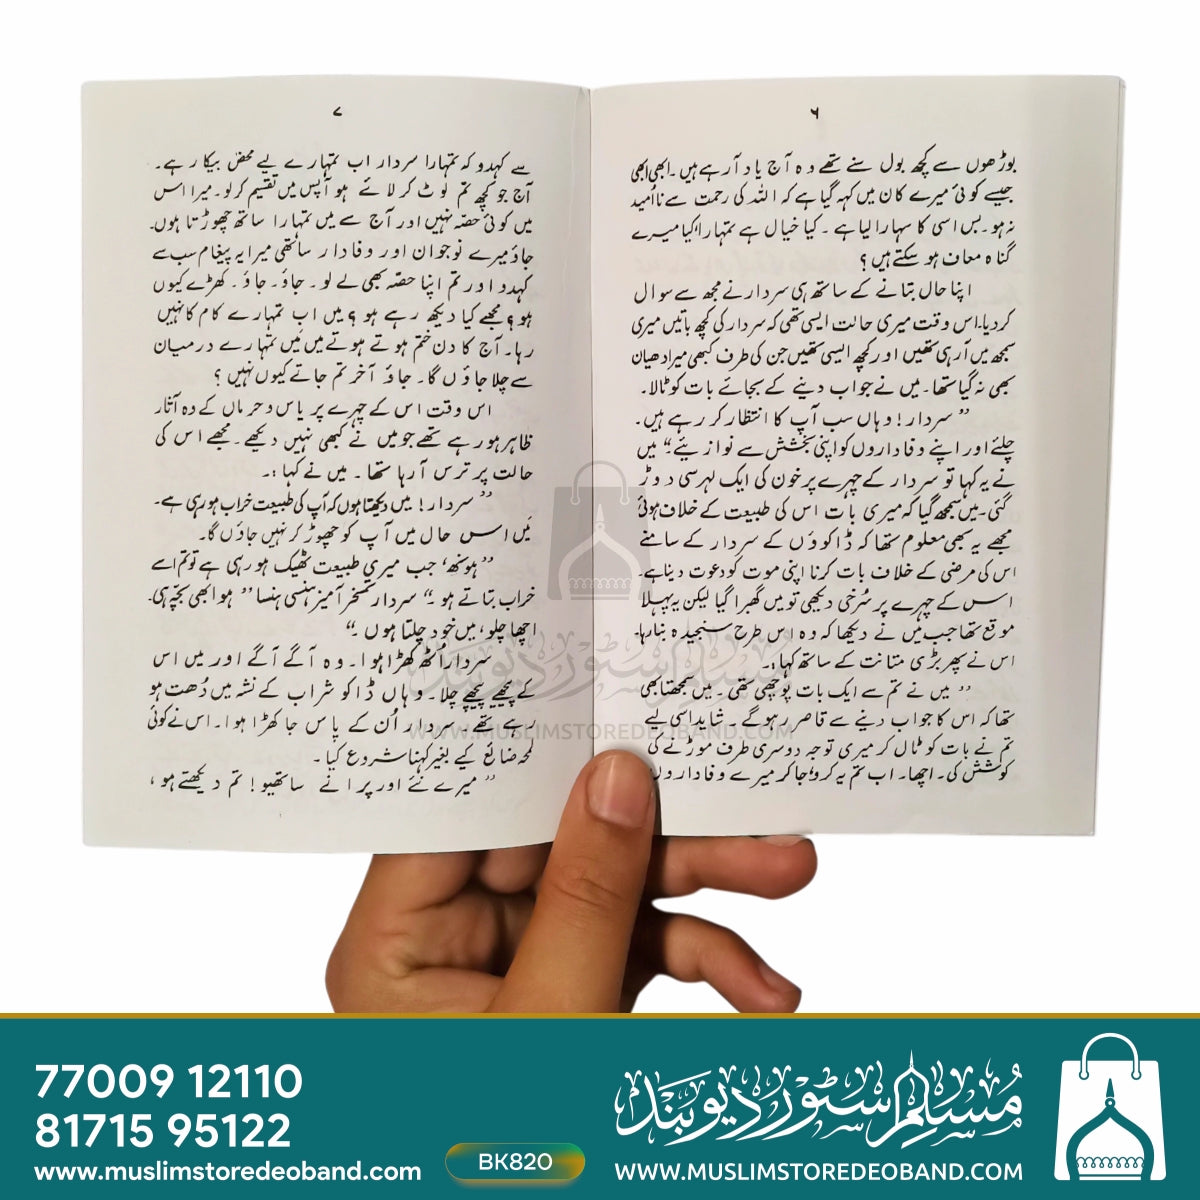 ۶
بوڑھوں سے کچھ بول سنے تھے وہ آج یاد آرہے ہیں۔ ابھی ابھی
جیسے کوئی میرے کان میں کہہ گیا ہے کہ اللہ کی رحمت سے ناامید
نہ ہو۔ بس اسی کا سہارا لیا ہے۔ کیا خیال ہے تمہارا کیا میرے
گناہ معاف ہو سکتے ہیں؟
اپنا حال بتانے کے ساتھ ہی سردار نے مجھ سے سوال
کردیا۔ اس وقت میری حالت ایسی تھی کہ سردار کی کچھ باتیں میری
سمجھ میں آرہی تھیں اور کچھ ایسی تھیں جن کی طرف کبھی میرا دھیان
بھی نہ گیا تھا۔ میں نے جواب دینے کے بجائے بات کو ٹالا۔
”سردار! وہاں سب آپ کا انتظار کر رہے ہیں۔
چلئے اور اپنے وفاداروں کو اپنی بخشش سے نوازیئے۔“ میں
نے یہ کہا تو سردار کے چہرے پر خون کی ایک لہر سی دوڑ
گئی۔ میں سمجھ گیا کہ میری بات اس کی طبیعت کے خلاف ہوئی
مجھے یہ بھی معلوم تھا کہ ڈاکوؤں کے سردار کے سامنے
اس کی مرضی کے خلاف بات کرنا اپنی موت کو دعوت دینا ہے۔
اس کے چہرے پر سُرخی دیکھی تو میں گھبرا گیا لیکن یہ پہلا
موقع تھا جب میں نے دیکھا کہ وہ اس طرح سنجیدہ بنا رہا۔
اس نے پھر بڑی متانت کے ساتھ کہا:۔
”میں نے تم سے ایک بات پوچھی تھی۔ میں سمجھتا بھی
تھا کہ اس کا جواب دینے سے قاصر رہو گے۔ شاید اسی لیے
تم نے بات کو ٹال کر میری توجہ دوسری طرف موڑنے کی
کوشش کی۔ اچھا۔ اب تم یہ کرو! جا کر میرے وفاداروں
۷
سے کہدو کہ تمہارا سردار اب تمہارے لیے محض بیکار ہے۔
آج جو کچھ تم لوٹ کر لائے ہو آپس میں تقسیم کر لو۔ میرا اس
میں کوئی حصّہ نہیں اور آج سے میں تمہارا ساتھ چھوڑتا ہوں۔
جاؤ میرے نوجوان اور وفادار ساتھی میرا یہ پیغام سب سے
کہدو اور تم اپنا حصّہ بھی لے لو۔ جاؤ۔ جاؤ۔ کھڑے کیوں
ہو؟ مجھے کیا دیکھ رہے ہو؟ میں اب تمہارے کام کا نہیں
رہا۔ آج کا دن ختم ہوتے ہوتے میں تمہارے درمیان
سے چلا جاؤں گا۔ جاؤ آخر تم جاتے کیوں نہیں؟
اس وقت اس کے چہرے پر یاس و حرماں کے وہ آثار
ظاہر ہو رہے تھے جو میں نے کبھی نہیں دیکھے۔ مجھے اس کی
حالت پر ترس آ رہا تھا۔ میں نے کہا:۔
”سردار! میں دیکھتا ہوں کہ آپ کی طبیعت خراب ہو رہی ہے۔
میں اس حال میں آپ کو چھوڑ کر نہیں جاؤں گا۔
”ہونھ، جب میری طبیعت ٹھیک ہو رہی ہے تو تم اسے
خراب بتاتے ہو۔“ سردار تمسخر آمیز ہنسی ہنسا ”ہو ابھی بچہ ہی۔
اچھا چلو، میں خود چلتا ہوں۔“
سردار اُٹھ کھڑا ہوا۔ وہ آگے آگے اور میں اس
کے پیچھے پیچھے چلا۔ وہاں ڈاکو شراب کے نشہ میں دُھت ہو
رہے تھے۔ سردار اُن کے پاس جا کھڑا ہوا۔ اس نے کوئی
لمحہ ضائع کیے بغیر کہنا شروع کیا۔
”میرے نئے اور پرانے ساتھیو! تم دیکھتے ہو،
مسلم سٹور دیوبند
WWW.MUSLIMSTOREDEOBAND.COM
77009 12110
81715 95122
www.muslimstoredeoband.com
BK820
مُسلم سٹور دیوبند
WWW.MUSLIMSTOREDEOBAND.COM